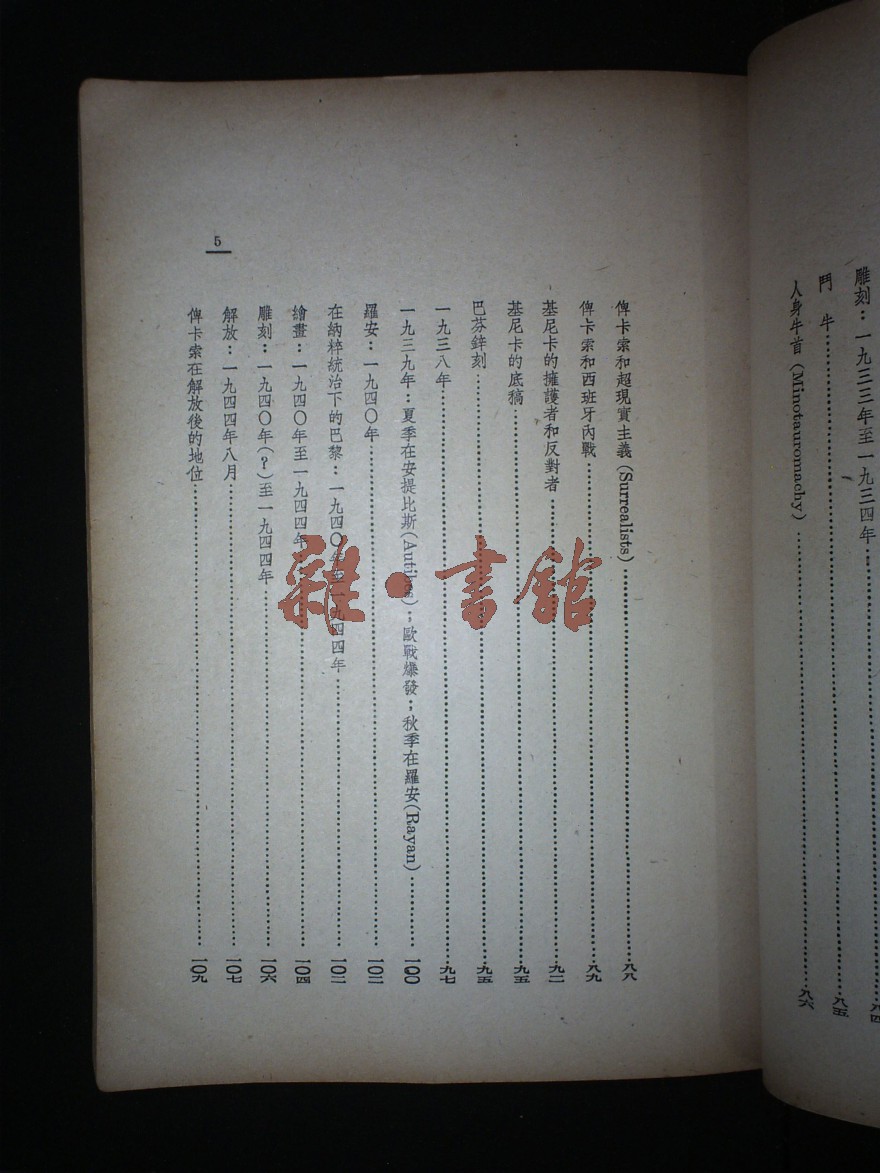 雕刻：一九三三年至一九三四年……八四
鬥　牛……八五
人身牛首(Minotauromachy)……八六
俾卡索和超現實主義(Surrealists)……八八
俾卡索和西班牙內戰……八九
基尼卡的擁護者和反對者……九二
基尼卡的底稿……九五
巴芬鋅刻……九五
一九三八年……九七
一九三九年：夏季在安提比斯(Antibes)；歐戰爆發；秋季在羅安(Rayan)……一〇〇
羅安：一九四〇年……一〇二
在納粹統治下的巴黎：一九四〇年至一九四四年……一〇二
繪畫：一九四〇年至一九四四年……一〇四
雕刻：一九四〇年(？)至一九四四年……一〇六
解放：一九四四年八月……一〇七
俾卡索在解放後的地位……一〇九
5
雜·書館